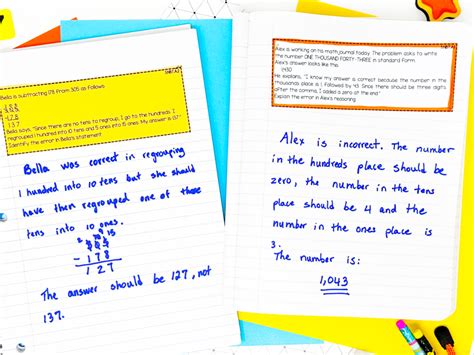 Bella is subtracting 178 from 305 as follows
- 178
137
Bella says, "Since there are no tens to regroup, I go to the hundreds. I
regrouped 1 hundred into 10 tens and 5 ones into 15 ones. My answer is 137."
Identify the error in Bella's statement.
Bella was correct in regrouping
1 hundred into 10 tens but she should
have then regrouped one of those
tens into 10 ones.
2 9 15
305
- 178
127
The answer should be 127, not
137.
Alex is working on his math journal today. The problem asks to write
the number ONE THOUSAND FORTY-THREE in standard form.
Alex's answer looks like this.
1,430
He explains, "I know my answer is correct because the number in the
thousands place is 1, followed by 43. Since there should be three digits
after the comma, I added a zero at the end."
Explain the error in Alex's reasoning.
Alex is incorrect. The number
in the hundreds place should be
zero, the number in the tens
place should be 4 and the
number in the ones place is
3.
The number is:
1,043